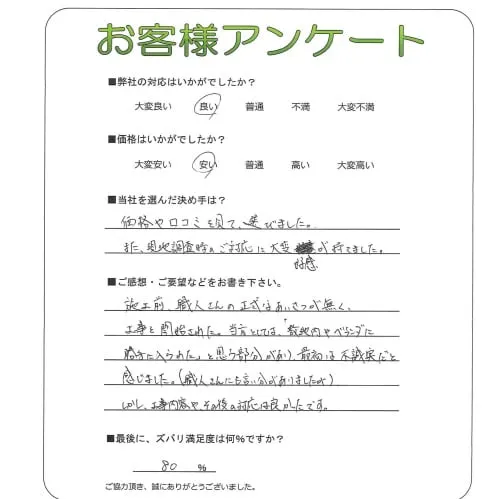 お客様アンケート
■弊社の対応はいかがでしたか？
大変良い 良い 普通 不満 大変不満
■価格はいかがでしたか？
大変安い 安い 普通 高い 大変高い
■当社を選んだ決め手は？
価格や口コミを見て、選びました。
また、現地調査時のご対応に大変 好感 が持てました。
■ご感想・ご要望などをお書き下さい。
施工前、職人さんの正式なあいさつが無く、
工事を開始された。当方としては、「敷地内やベランダに
勝手に入られた」と思う部分があり、最初は不誠実だと
感じました。(職人さんにも言い分がありましたが)
しかし、工事内容や、その後の対応は良かったです。
■最後に、ズバリ満足度は何%ですか？
80 %
ご協力頂き、誠にありがとうございました。